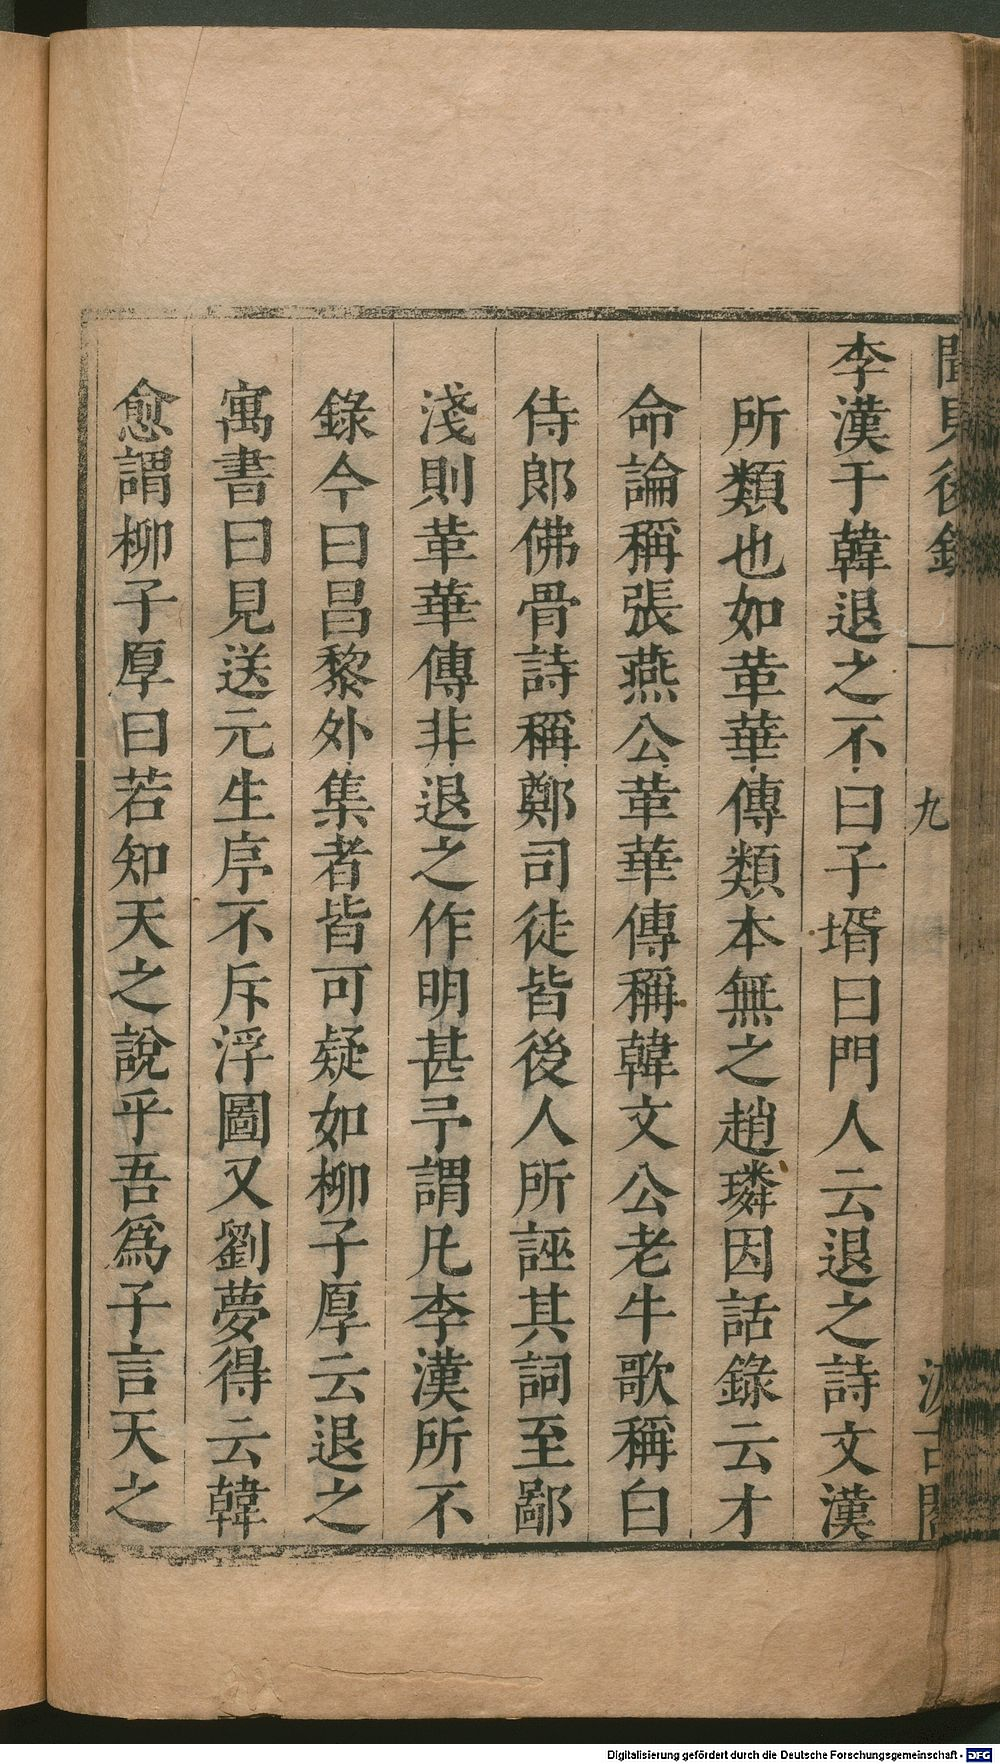 聞見後錄
九
汲古閣
李漢于韓退之不曰子壻曰門人云退之詩文漢
所類也如革華傳類本無之趙璘因話錄云才
命論稱張燕公革華傳稱韓文公老牛歌稱白
侍郎佛骨詩稱鄭司徒皆後人所誣其詞至鄙
淺則革華傳非退之作明甚予謂凡李漢所不
錄今曰昌黎外集者皆可疑如柳子厚云退之
寓書曰見送元生序不斥浮圖又劉夢得云韓
愈謂柳子厚曰若知天之說乎吾爲子言天之
Digitalisierung gefördert durch die Deutsche Forschungsgemeinschaft - DFG